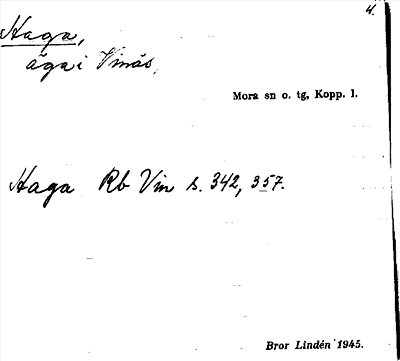 4.
Haga,
äga i Vinäs,
Mora sn o. tg, Kopp. l.
Haga Rb Vin s. 342, 357.
Bror Lindén 1945.